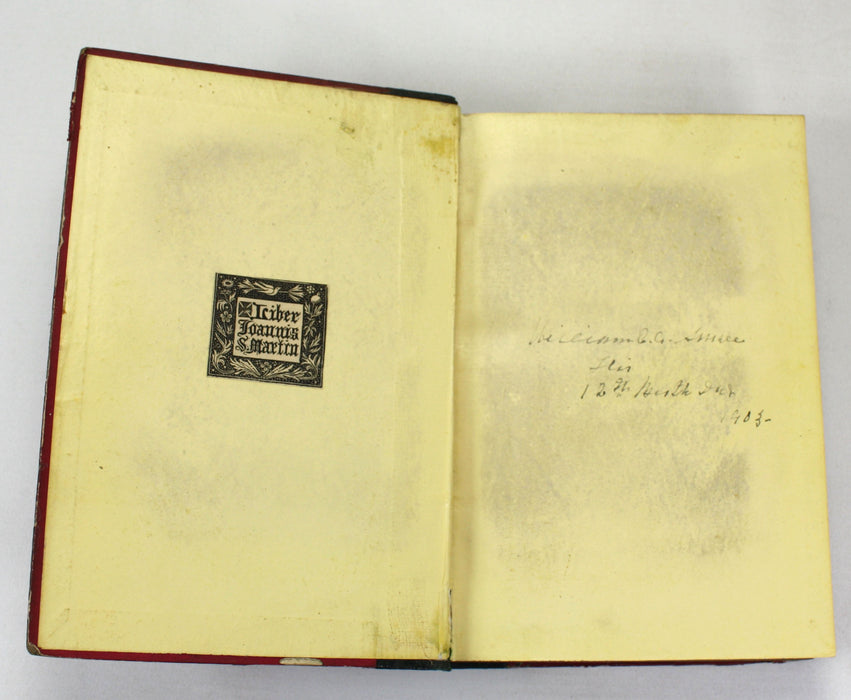 Liber
Ioannis
S. Martin
William C. C.
His
12th Birth Day
1903-